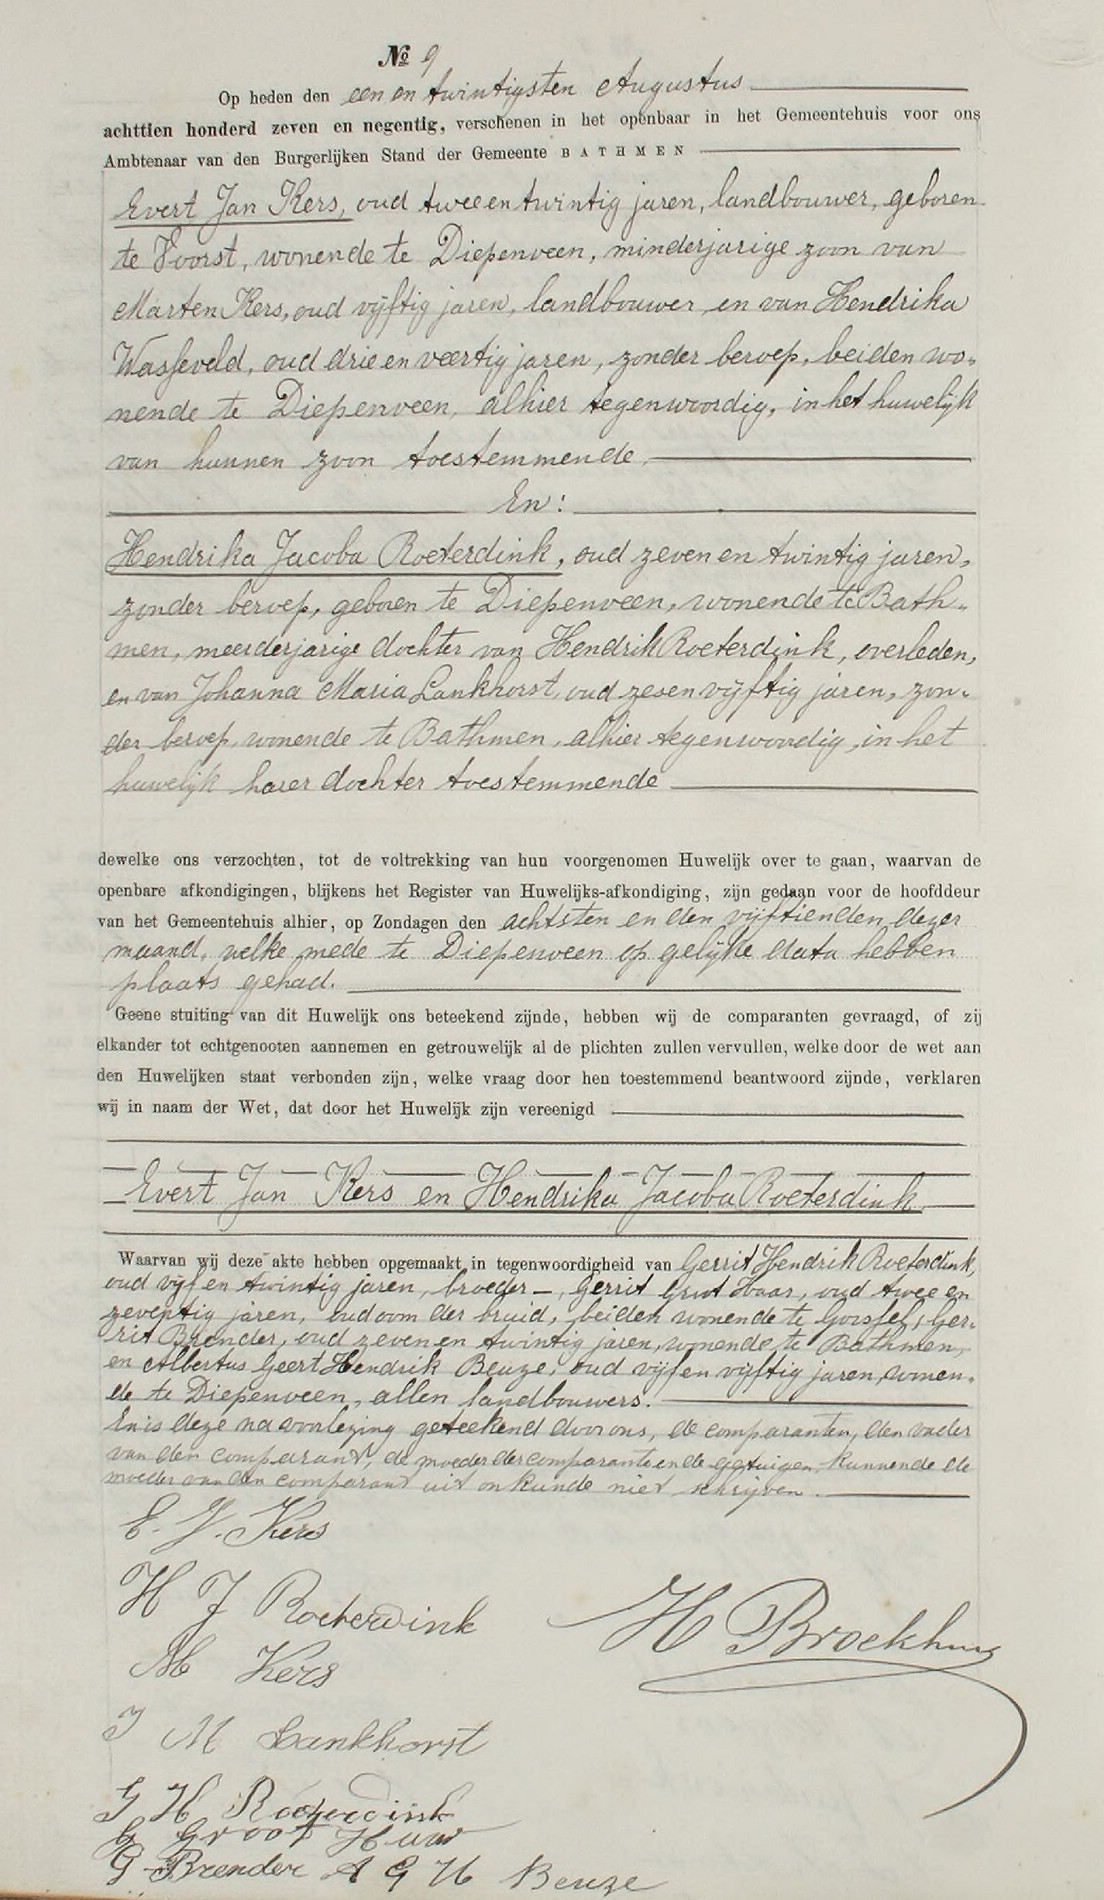 № 9
Op heden den een en twintigsten Augustus
achttien honderd zeven en negentig, verschenen in het openbaar in het Gemeentehuis voor ons
Ambtenaar van den Burgerlijken Stand der Gemeente BATHMEN
Evert Jan Kers, oud twee en twintig jaren, landbouwer, geboren
te Voorst, wonende te Diepenveen, minderjarige zoon van
Marten Kers, oud vijftig jaren, landbouwer, en van Hendrika
Wasseveld, oud drie en veertig jaren, zonder beroep, beiden wo-
nende te Diepenveen, alhier tegenwoordig, in het huwelijk
van hunnen zoon toestemmende.
En:
Hendrika Jacoba Roeterdink, oud zeven en twintig jaren,
zonder beroep, geboren te Diepenveen, wonende te Bath-
men, meerderjarige dochter van Hendrik Roeterdink, overleden,
en van Johanna Maria Lankhorst, oud zes en vijftig jaren, zon-
der beroep, wonende te Bathmen, alhier tegenwoordig, in het
huwelijk harer dochter toestemmende
dewelke ons verzochten, tot de voltrekking van hun voorgenomen Huwelijk over te gaan, waarvan de
openbare afkondigingen, blijkens het Register van Huwelijks-afkondiging, zijn gedaan voor de hoofddeur
van het Gemeentehuis alhier, op Zondagen den achtsten en den vijftienden dezer
maand, welke mede te Diepenveen op gelijke data hebben
plaats gehad.
Geene stuiting van dit Huwelijk ons beteekend zijnde, hebben wij de comparanten gevraagd, of zij
elkander tot echtgenooten aannemen en getrouwelijk al de plichten zullen vervullen, welke door de wet aan
den Huwelijken staat verbonden zijn, welke vraag door hen toestemmend beantwoord zijnde, verklaren
wij in naam der Wet, dat door het Huwelijk zijn vereenigd
Evert Jan Kers en Hendrika Jacoba Roeterdink.
Waarvan wij deze akte hebben opgemaakt in tegenwoordigheid van Gerrit Hendrik Roeterdink,
oud vijf en twintig jaren, broeder –, Gerrit Groot Haar, oud twee en
zeventig jaren, oudoom der bruid, beiden wonende te Gorssel, Ger-
rit Brender, oud zeven en twintig jaren, wonende te Bathmen,
en Albertus Geert Hendrik Beuze, oud vijf en vijftig jaren, wonen-
de te Diepenveen, allen landbouwers.
En is deze na voorlezing geteekend door ons, de comparanten, den vader
van den comparant, de moeder der comparante en de getuigen, kunnende de
moeder van den comparant uit onkunde niet schrijven.
E. J. Kers
H J Roeterdink
H Broekhuis
M Kers
J M Lankhorst
G H Roeterdink
G Groot Haar
G Brender A G H Beuze